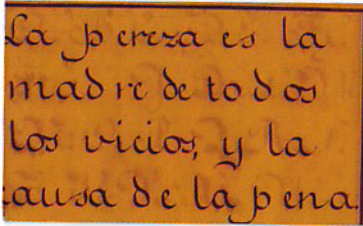 La pereza es la
madre de todos
los vicios, y la
causa de la pena.